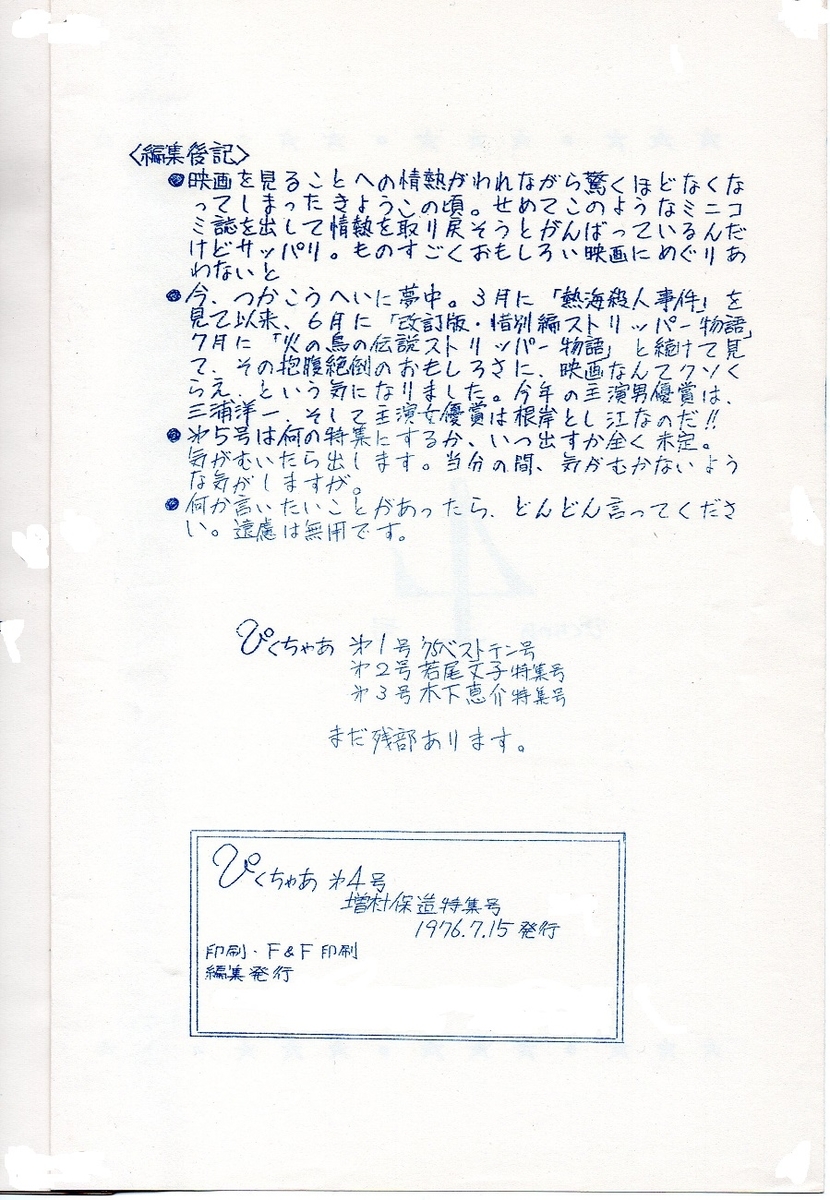 〈編集後記〉
●映画を見ることへの情熱がわれながら驚くほどなくな
ってしまったきょうこの頃。せめてこのようなミニコ
ミ誌を出して情熱を取り戻そうとがんばっているんだ
けどサッパリ。ものすごくおもしろい映画にめぐりあ
わないと
●今、つかこうへいに夢中。3月に「熱海殺人事件」を
見て以来、6月に「改訂版・惜別編ストリッパー物語」
7月に「火の鳥の伝説ストリッパー物語」と続けて見
て、その抱腹絶倒のおもしろさに、映画なんてクソく
らえ、という気になりました。今年の主演男優賞は、
三浦洋一、そして主演女優賞は根岸とし江なのだ!!
●㐧5号は何の特集にするか、いつ出すか全く未定。
気がむいたら出します。当分の間、気がむかないよう
な気がしますが。
●何か言いたいことがあったら、どんどん言ってくださ
い。遠慮は無用です。
ぴくちゃあ 㐧1号 '75ベストテン号
㐧2号 若尾文子特集号
㐧3号 木下恵介特集号
まだ残部あります。
ぴくちゃあ 㐧4号
増村保造特集号
1976.7.15 発行
印刷・F&F印刷
編集発行